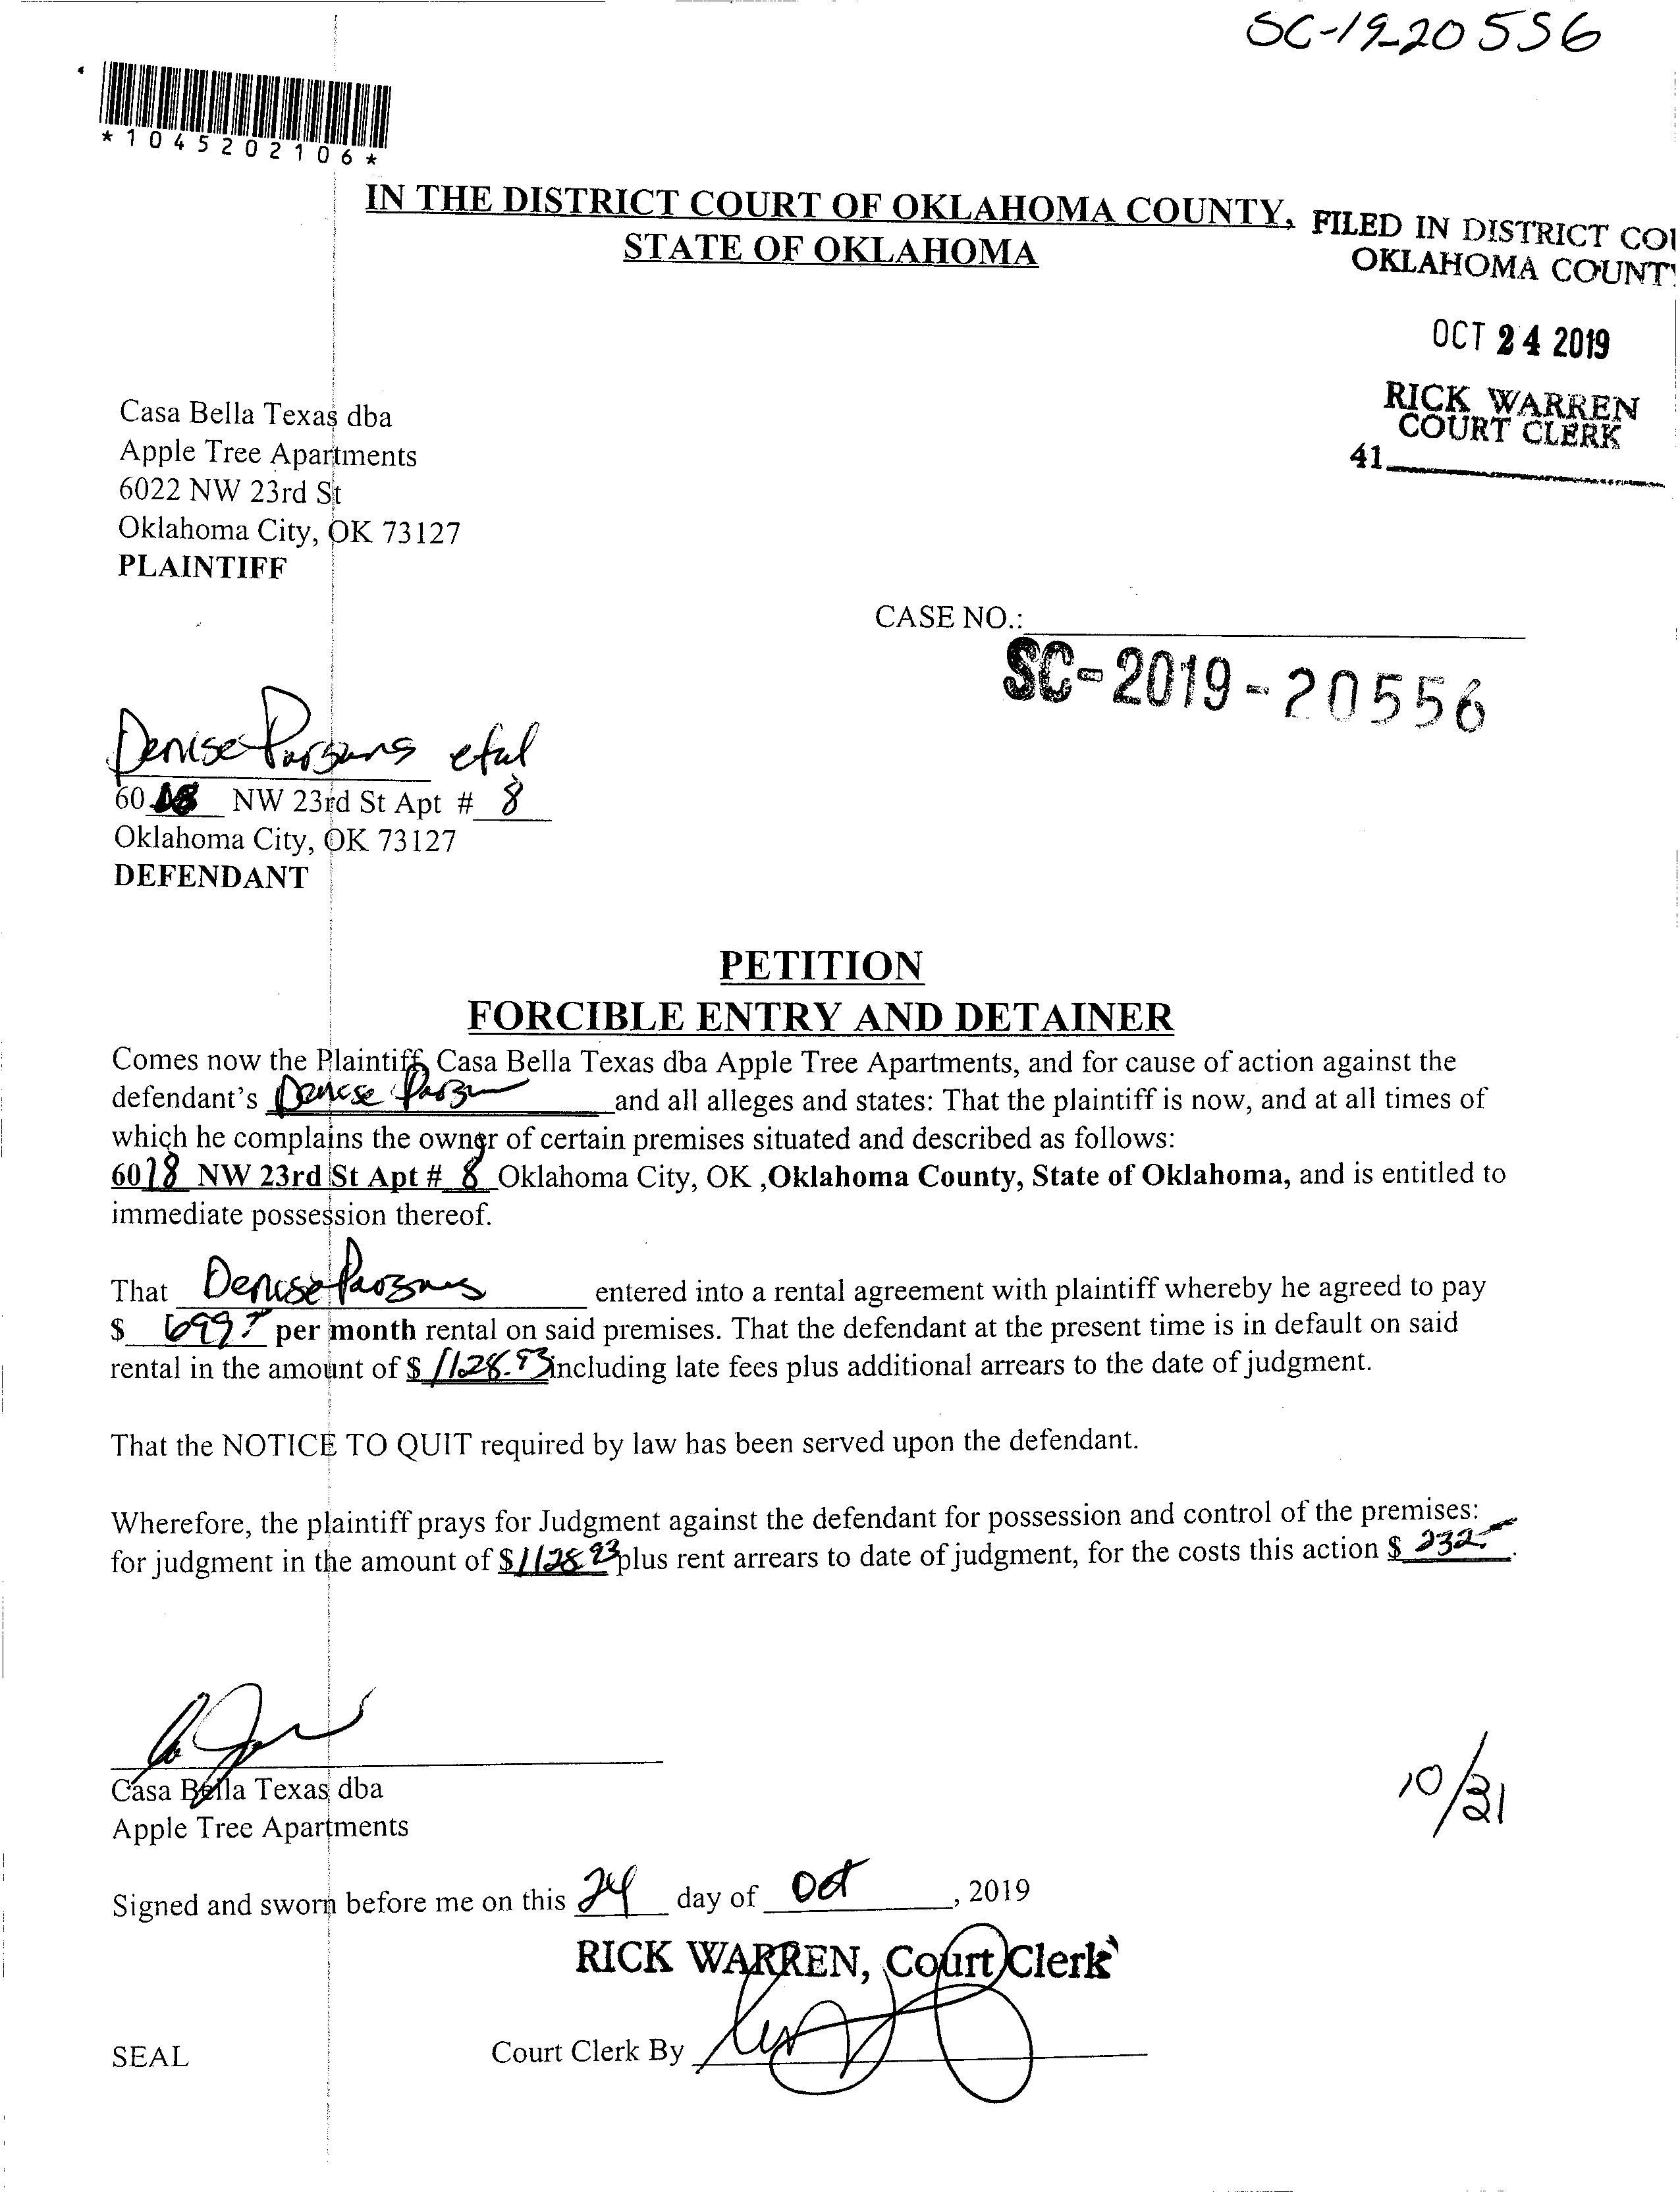 SC-19-20556
*1045202106*
IN THE DISTRICT COURT OF OKLAHOMA COUNTY,
STATE OF OKLAHOMA
FILED IN DISTRICT COU
OKLAHOMA COUNTY
OCT 24 2019
RICK WARREN
COURT CLERK
41
Casa Bella Texas dba
Apple Tree Apartments
6022 NW 23rd St
Oklahoma City, OK 73127
PLAINTIFF
CASE NO.:
SC-2019-20556
Denise Parsons etal
6018 NW 23rd St Apt # 8
Oklahoma City, OK 73127
DEFENDANT
PETITION
FORCIBLE ENTRY AND DETAINER
Comes now the Plaintiff, Casa Bella Texas dba Apple Tree Apartments, and for cause of action against the
defendant's Denise Parsons and all alleges and states: That the plaintiff is now, and at all times of
which he complains the owner of certain premises situated and described as follows:
6018 NW 23rd St Apt # 8 Oklahoma City, OK ,Oklahoma County, State of Oklahoma, and is entitled to
immediate possession thereof.
That Denise Parsons entered into a rental agreement with plaintiff whereby he agreed to pay
$ 699 per month rental on said premises. That the defendant at the present time is in default on said
rental in the amount of $ 1128.93 including late fees plus additional arrears to the date of judgment.
That the NOTICE TO QUIT required by law has been served upon the defendant.
Wherefore, the plaintiff prays for Judgment against the defendant for possession and control of the premises:
for judgment in the amount of $1128.93 plus rent arrears to date of judgment, for the costs this action $ 232.-.
Casa Bella Texas dba
Apple Tree Apartments
10/31
Signed and sworn before me on this 24 day of Oct, 2019
RICK WARREN, Court Clerk
SEAL
Court Clerk By